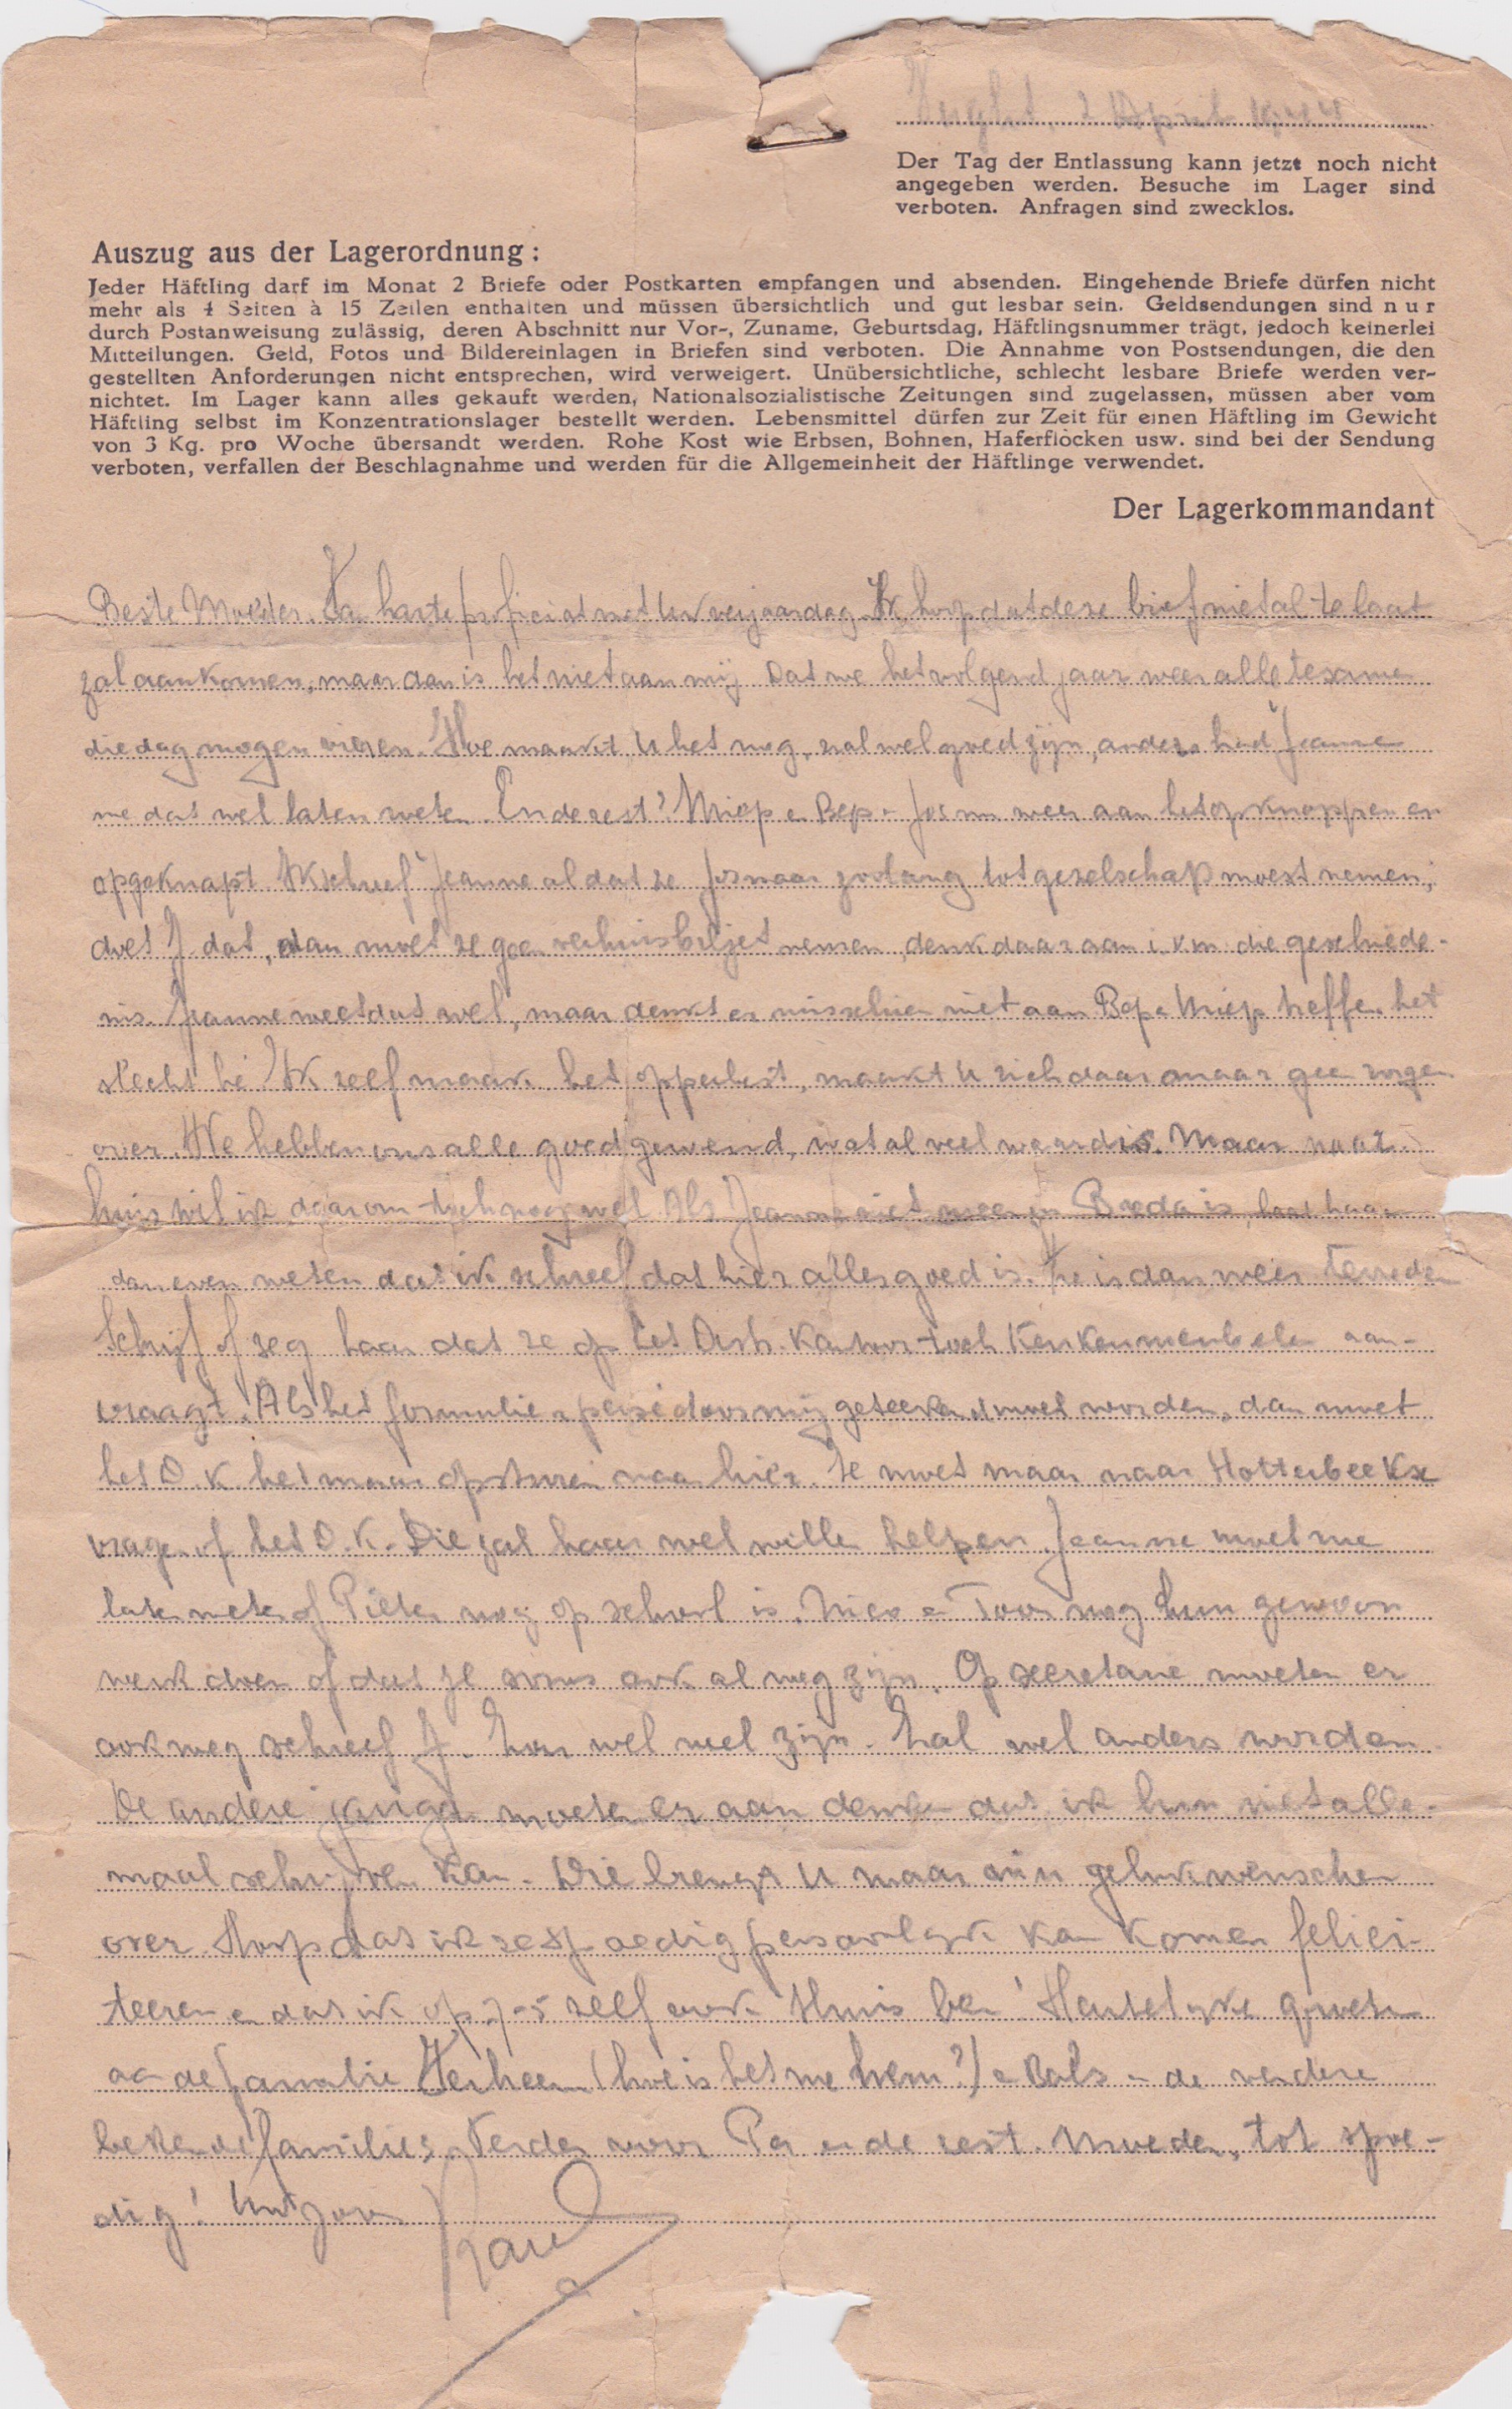 Vught, 2 April 1944
Der Tag der Entlassung kann jetzt noch nicht
angegeben werden. Besuche im Lager sind
verboten. Anfragen sind zwecklos.
Auszug aus der Lagerordnung:
Jeder Häftling darf im Monat 2 Briefe oder Postkarten empfangen und absenden. Eingehende Briefe dürfen nicht
mehr als 4 Seiten à 15 Zeilen enthalten und müssen übersichtlich und gut lesbar sein. Geldsendungen sind nur
durch Postanweisung zulässig, deren Abschnitt nur Vor-, Zuname, Geburtsdag, Häftlingsnummer trägt, jedoch keinerlei
Mitteilungen. Geld, Fotos und Bildereinlagen in Briefen sind verboten. Die Annahme von Postsendungen, die den
gestellten Anforderungen nicht entsprechen, wird verweigert. Unübersichtliche, schlecht lesbare Briefe werden ver-
nichtet. Im Lager kann alles gekauft werden, Nationalsozialistische Zeitungen sind zugelassen, müssen aber vom
Häftling selbst im Konzentrationslager bestellt werden. Lebensmittel dürfen zur Zeit für einen Häftling im Gewicht
von 3 Kg. pro Woche übersandt werden. Rohe Kost wie Erbsen, Bohnen, Haferflocken usw. sind bei der Sendung
verboten, verfallen der Beschlagnahme und werden für die Allgemeinheit der Häftlinge verwendet.
Der Lagerkommandant
Beste Moeder. Van harte proficiat met Uw verjaardag. Ik hoop dat deze brief niet al te laat
zal aankomen, maar dan is het niet aan mij. Dat we het volgend jaar weer alle tesamen
die dag mogen vieren. Hoe maakt U het nog, zal wel goed zijn, anders had Jeanne
me dat wel laten weten. En de rest? Miep en Bep en Jos nu weer aan het opknappen en
opgeknapt. Ik schreef Jeanne al dat ze Jos maar zoolang tot gezelschap moest nemen,
doet J. dat, dan moet ze geen verhuisbiljet nemen, denk daaraan i.v.m. die geschiede-
nis. Jeanne weet dat wel, maar denkt er misschien niet aan. Bep en Miep treffen het
slecht hè. Ik zelf maak het opperbest, maakt U zich daar maar geen zorgen
over. We hebben ons alle goed gewend, wat al veel waard is. Maar naar
huis wil ik daarom toch nog wel. Als Jeanne niet meer in Breda is, laat haar
dan even weten dat ik schreef dat hier alles goed is. Ze is dan weer tevreden
Schrijf of zeg haar dat ze op het Distr. Kantoor toch keukenmeubelen aan-
vraagt. Als het formulier persé door mij geteekend moet worden, dan moet
het D.K. het maar opsturen naar hier. Ze moet maar naar Hotterbeekx
vragen of het D.K. Die zal haar wel willen helpen. Jeanne moet me
laten weten of Pieter nog op school is. Nico en Toos nog hun gewoon
werk doen of dat ze soms ook al weg zijn. Op secretarie moeten er
ook weg schreef J. Zou wel veel zijn. Zal wel anders worden.
De andere jarigen moeten er aan denken dat ik hun niet alle-
maal schrijven kan. Die brengt U maar mijn gelukwenschen
over. Hoop dat ik ze spoedig persoonlijk kan komen felici-
teeren en dat ik op 7-5 zelf ook thuis ben! Hartelijke groeten
aan de familie Verheem (hoe is het me hem?) en Bals en de verdere
bekende families. Verder voor Pa en de rest. Moeder, tot spoe-
dig! Uw zoon
Karel